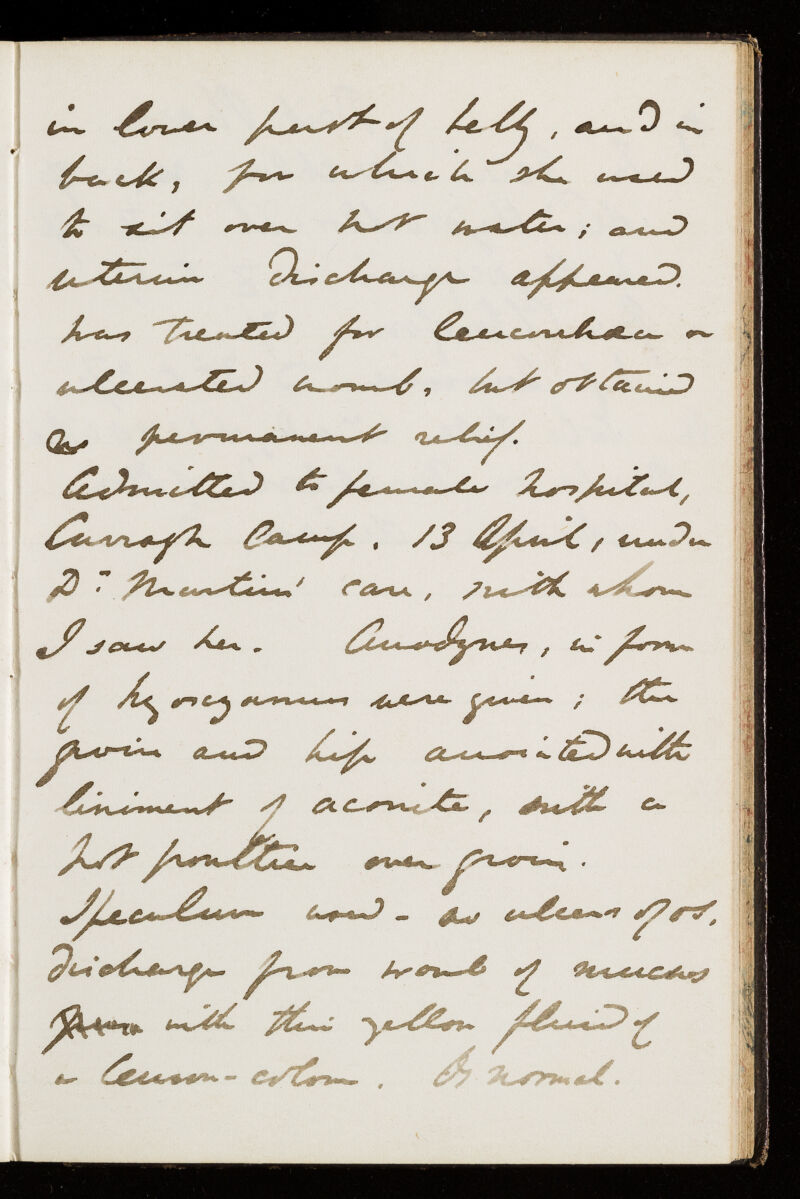 in lower part of belly, and in
back, for which she used
to sit over hot water; and
uterine discharge appeared.
Was treated for leucorrhœa or
ulcerated womb, but obtained
no permanent relief.
Admitted to female hospital,
Curragh Camp. 13 April, under
Dr. Martin's care, with whom
I saw her. Anodynes, in form
of hyoscyamus were given; the
groin and hip anointed with
liniment of aconite, with a
hot poultice over groin.
Speculum used - no ulcers of os,
discharge from womb of mucus
with thin yellow fluid of
a lemon-colour. Os normal.